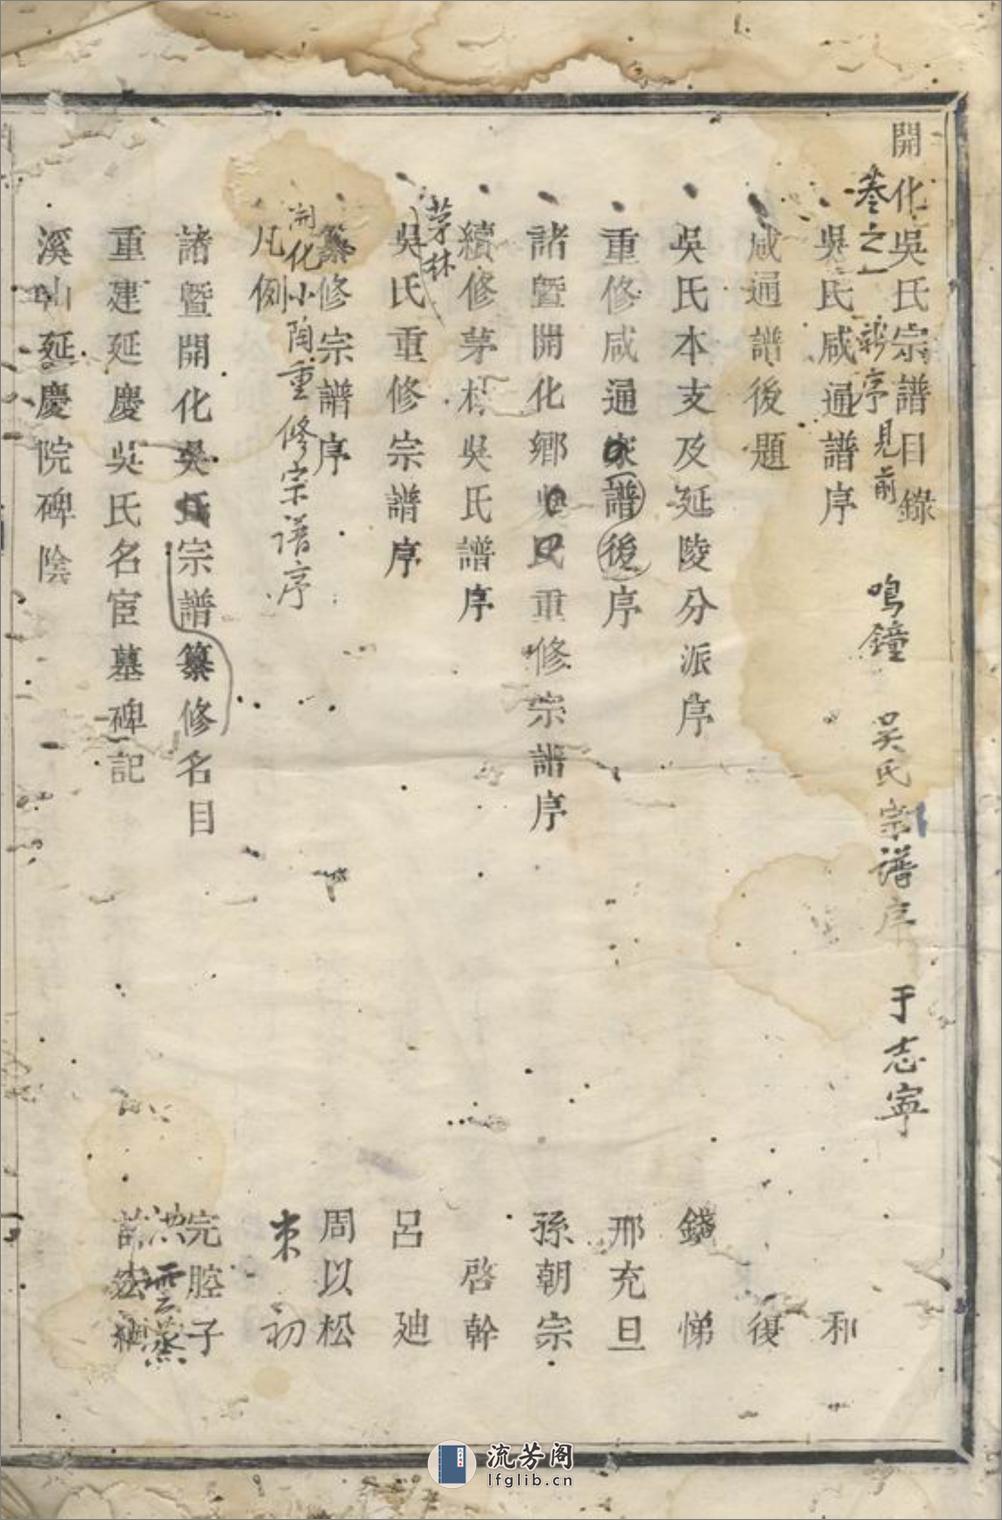 開化吳氏宗譜目錄
卷之一 新序見前
鳴鐘 吴氏宗谱序 于志寧
吳氏咸通譜序 和
咸通譜後題 復
吳氏本支及延陵分派序 錢 悌
重修咸通家譜後序 邢充旦
諸暨開化鄉吳氏重修宗譜序 孫朝宗
續修茅村吳氏譜序 啓幹
茅林
吳氏重修宗譜序 呂 廸
纂修宗譜序 周以松
開化小陶重修宗谱序 朿 初
凡例
諸暨開化吳氏宗譜纂修名目 完腔子
洪雲蒸
重建延慶吳氏名宦墓碑記
溪山延慶院碑陰
流芳阁
lfglib.cn